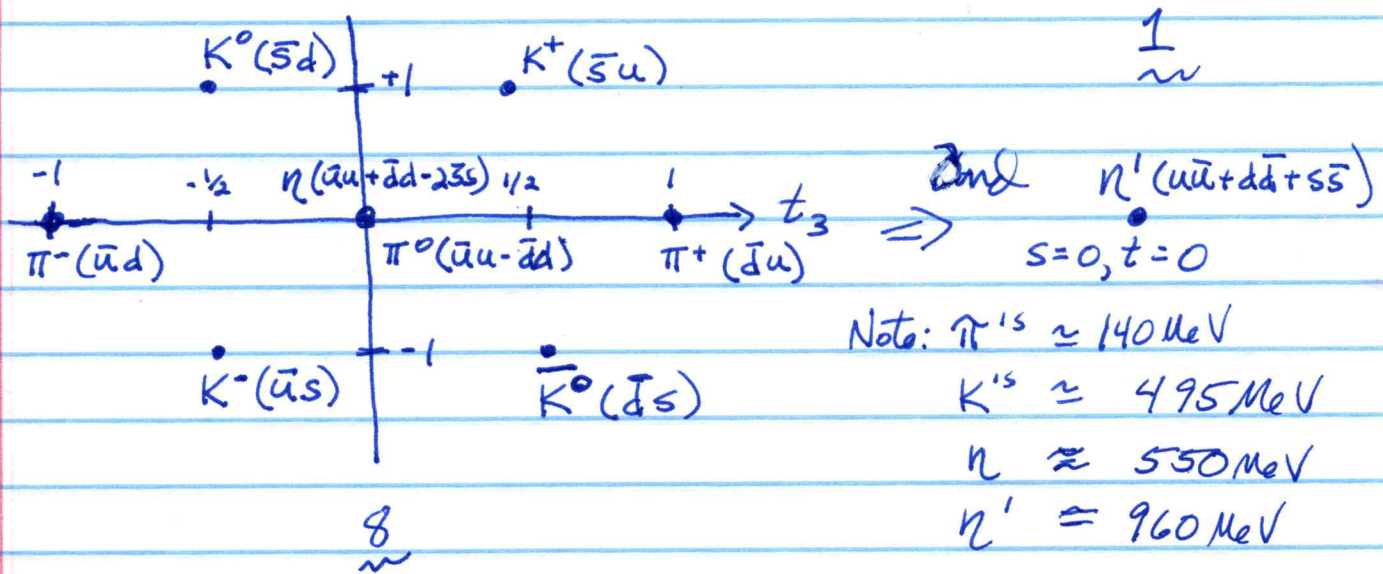 1
K⁰(s̄d) +1 K⁺(s̄u)
-1 -½ η(ūu+d̄d-2s̄s) 1/2 1 t₃ ⇒ and η'(uū+dd̄+ss̄)
π⁻(ūd) π⁰(ūu-d̄d) π⁺(d̄u) s=0, t=0
Note: π's ≃ 140 MeV
K⁻(ūs) -1 K̄⁰(d̄s) K's ≃ 495 MeV
η ≈ 550 MeV
8 η' ≃ 960 MeV